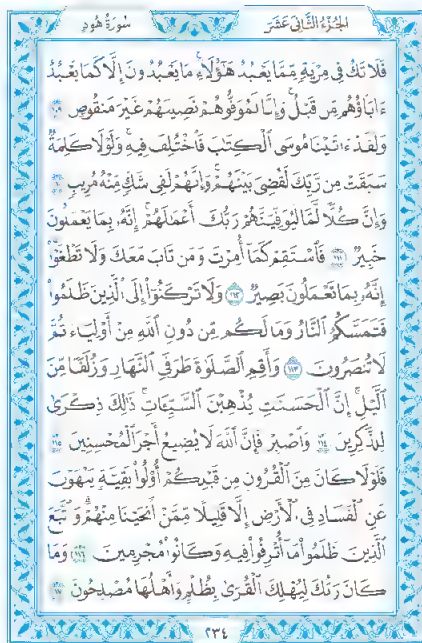 الجزء الثاني عشر
سورة هود
فَلَا تَكُ فِى مِرْيَةٍ مِّمَّا يَعْبُدُ هَٰٓؤُلَآءِ ۚ مَا يَعْبُدُونَ إِلَّا كَمَا يَعْبُدُ
ءَابَآؤُهُم مِّن قَبْلُ ۚ وَإِنَّا لَمُوَفُّوهُمْ نَصِيبَهُمْ غَيْرَ مَنقُوصٍ ١٠٩
وَلَقَدْ ءَاتَيْنَا مُوسَى ٱلْكِتَٰبَ فَٱخْتُلِفَ فِيهِ ۚ وَلَوْلَا كَلِمَةٌ
سَبَقَتْ مِن رَّبِّكَ لَقُضِىَ بَيْنَهُمْ ۚ وَإِنَّهُمْ لَفِى شَكٍّ مِّنْهُ مُرِيبٍ ١١٠
وَإِنَّ كُلًّا لَّمَّا لَيُوَفِّيَنَّهُمْ رَبُّكَ أَعْمَٰلَهُمْ ۚ إِنَّهُۥ بِمَا يَعْمَلُونَ
خَبِيرٌ ١١١ فَٱسْتَقِمْ كَمَآ أُمِرْتَ وَمَن تَابَ مَعَكَ وَلَا تَطْغَوْا۟ ۚ
إِنَّهُۥ بِمَا تَعْمَلُونَ بَصِيرٌ ١١٢ وَلَا تَرْكَنُوٓا۟ إِلَى ٱلَّذِينَ ظَلَمُوا۟
فَتَمَسَّكُمُ ٱلنَّارُ وَمَا لَكُم مِّن دُونِ ٱللَّهِ مِنْ أَوْلِيَآءَ ثُمَّ
لَا تُنصَرُونَ ١١٣ وَأَقِمِ ٱلصَّلَوٰةَ طَرَفَىِ ٱلنَّهَارِ وَزُلَفًا مِّنَ
ٱلَّيْلِ ۚ إِنَّ ٱلْحَسَنَٰتِ يُذْهِبْنَ ٱلسَّيِّـَٔاتِ ۚ ذَٰلِكَ ذِكْرَىٰ
لِلذَّٰكِرِينَ ١١٤ وَٱصْبِرْ فَإِنَّ ٱللَّهَ لَا يُضِيعُ أَجْرَ ٱلْمُحْسِنِينَ ١١٥
فَلَوْلَا كَانَ مِنَ ٱلْقُرُونِ مِن قَبْلِكُمْ أُو۟لُوا۟ بَقِيَّةٍ يَنْهَوْنَ
عَنِ ٱلْفَسَادِ فِى ٱلْأَرْضِ إِلَّا قَلِيلًا مِّمَّنْ أَنجَيْنَا مِنْهُمْ ۗ وَٱتَّبَعَ
ٱلَّذِينَ ظَلَمُوا۟ مَآ أُتْرِفُوا۟ فِيهِ وَكَانُوا۟ مُجْرِمِينَ ١١٦ وَمَا
كَانَ رَبُّكَ لِيُهْلِكَ ٱلْقُرَىٰ بِظُلْمٍ وَأَهْلُهَا مُصْلِحُونَ ١١٧
٢٣٤